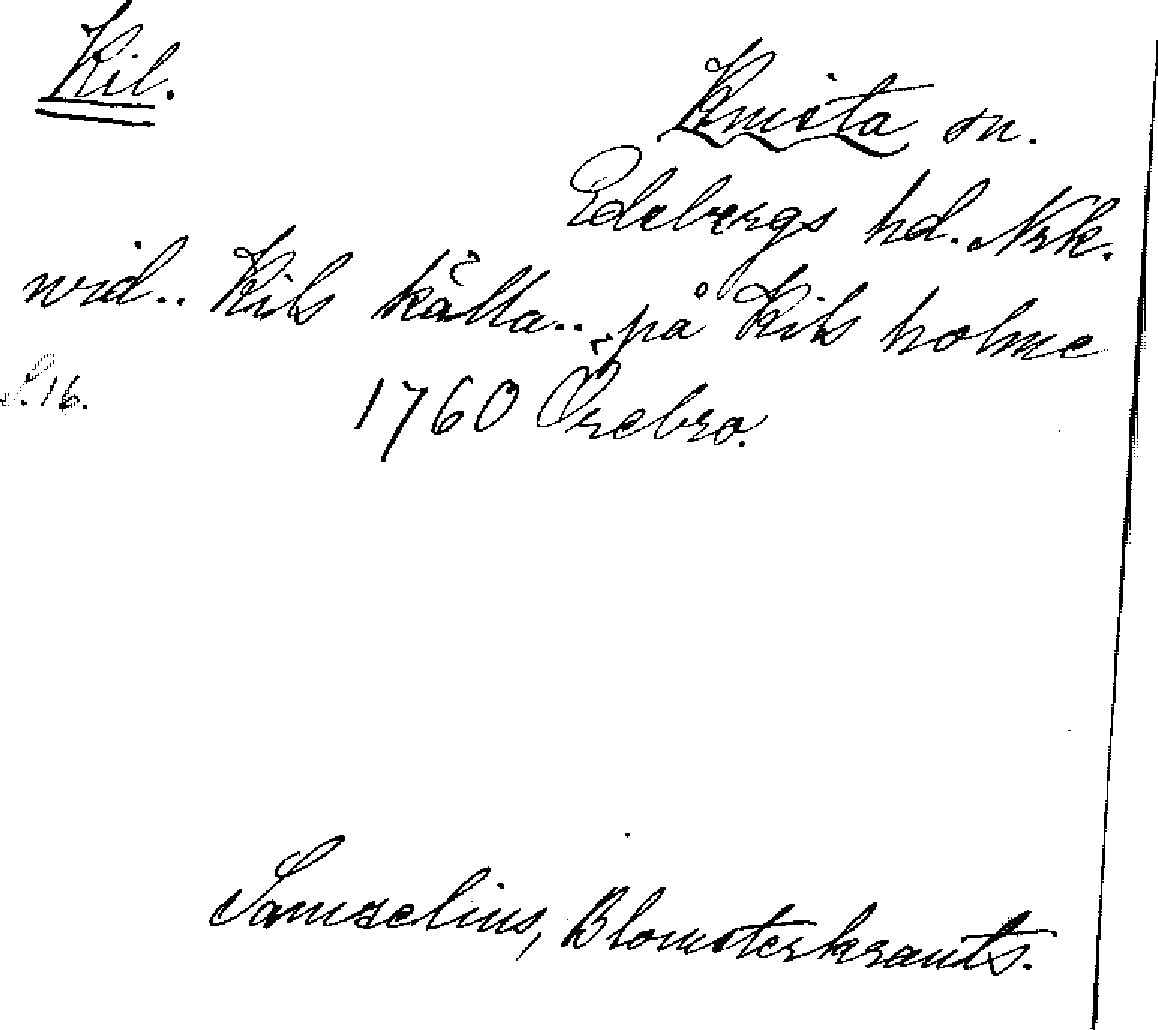 Kil.
Knista sn.
Edebergs hd. Nrk.
wid.. Kils källa.. på Kils holme
S.16. 1760 Örebro.
Samzelius, Blomsterkrants.